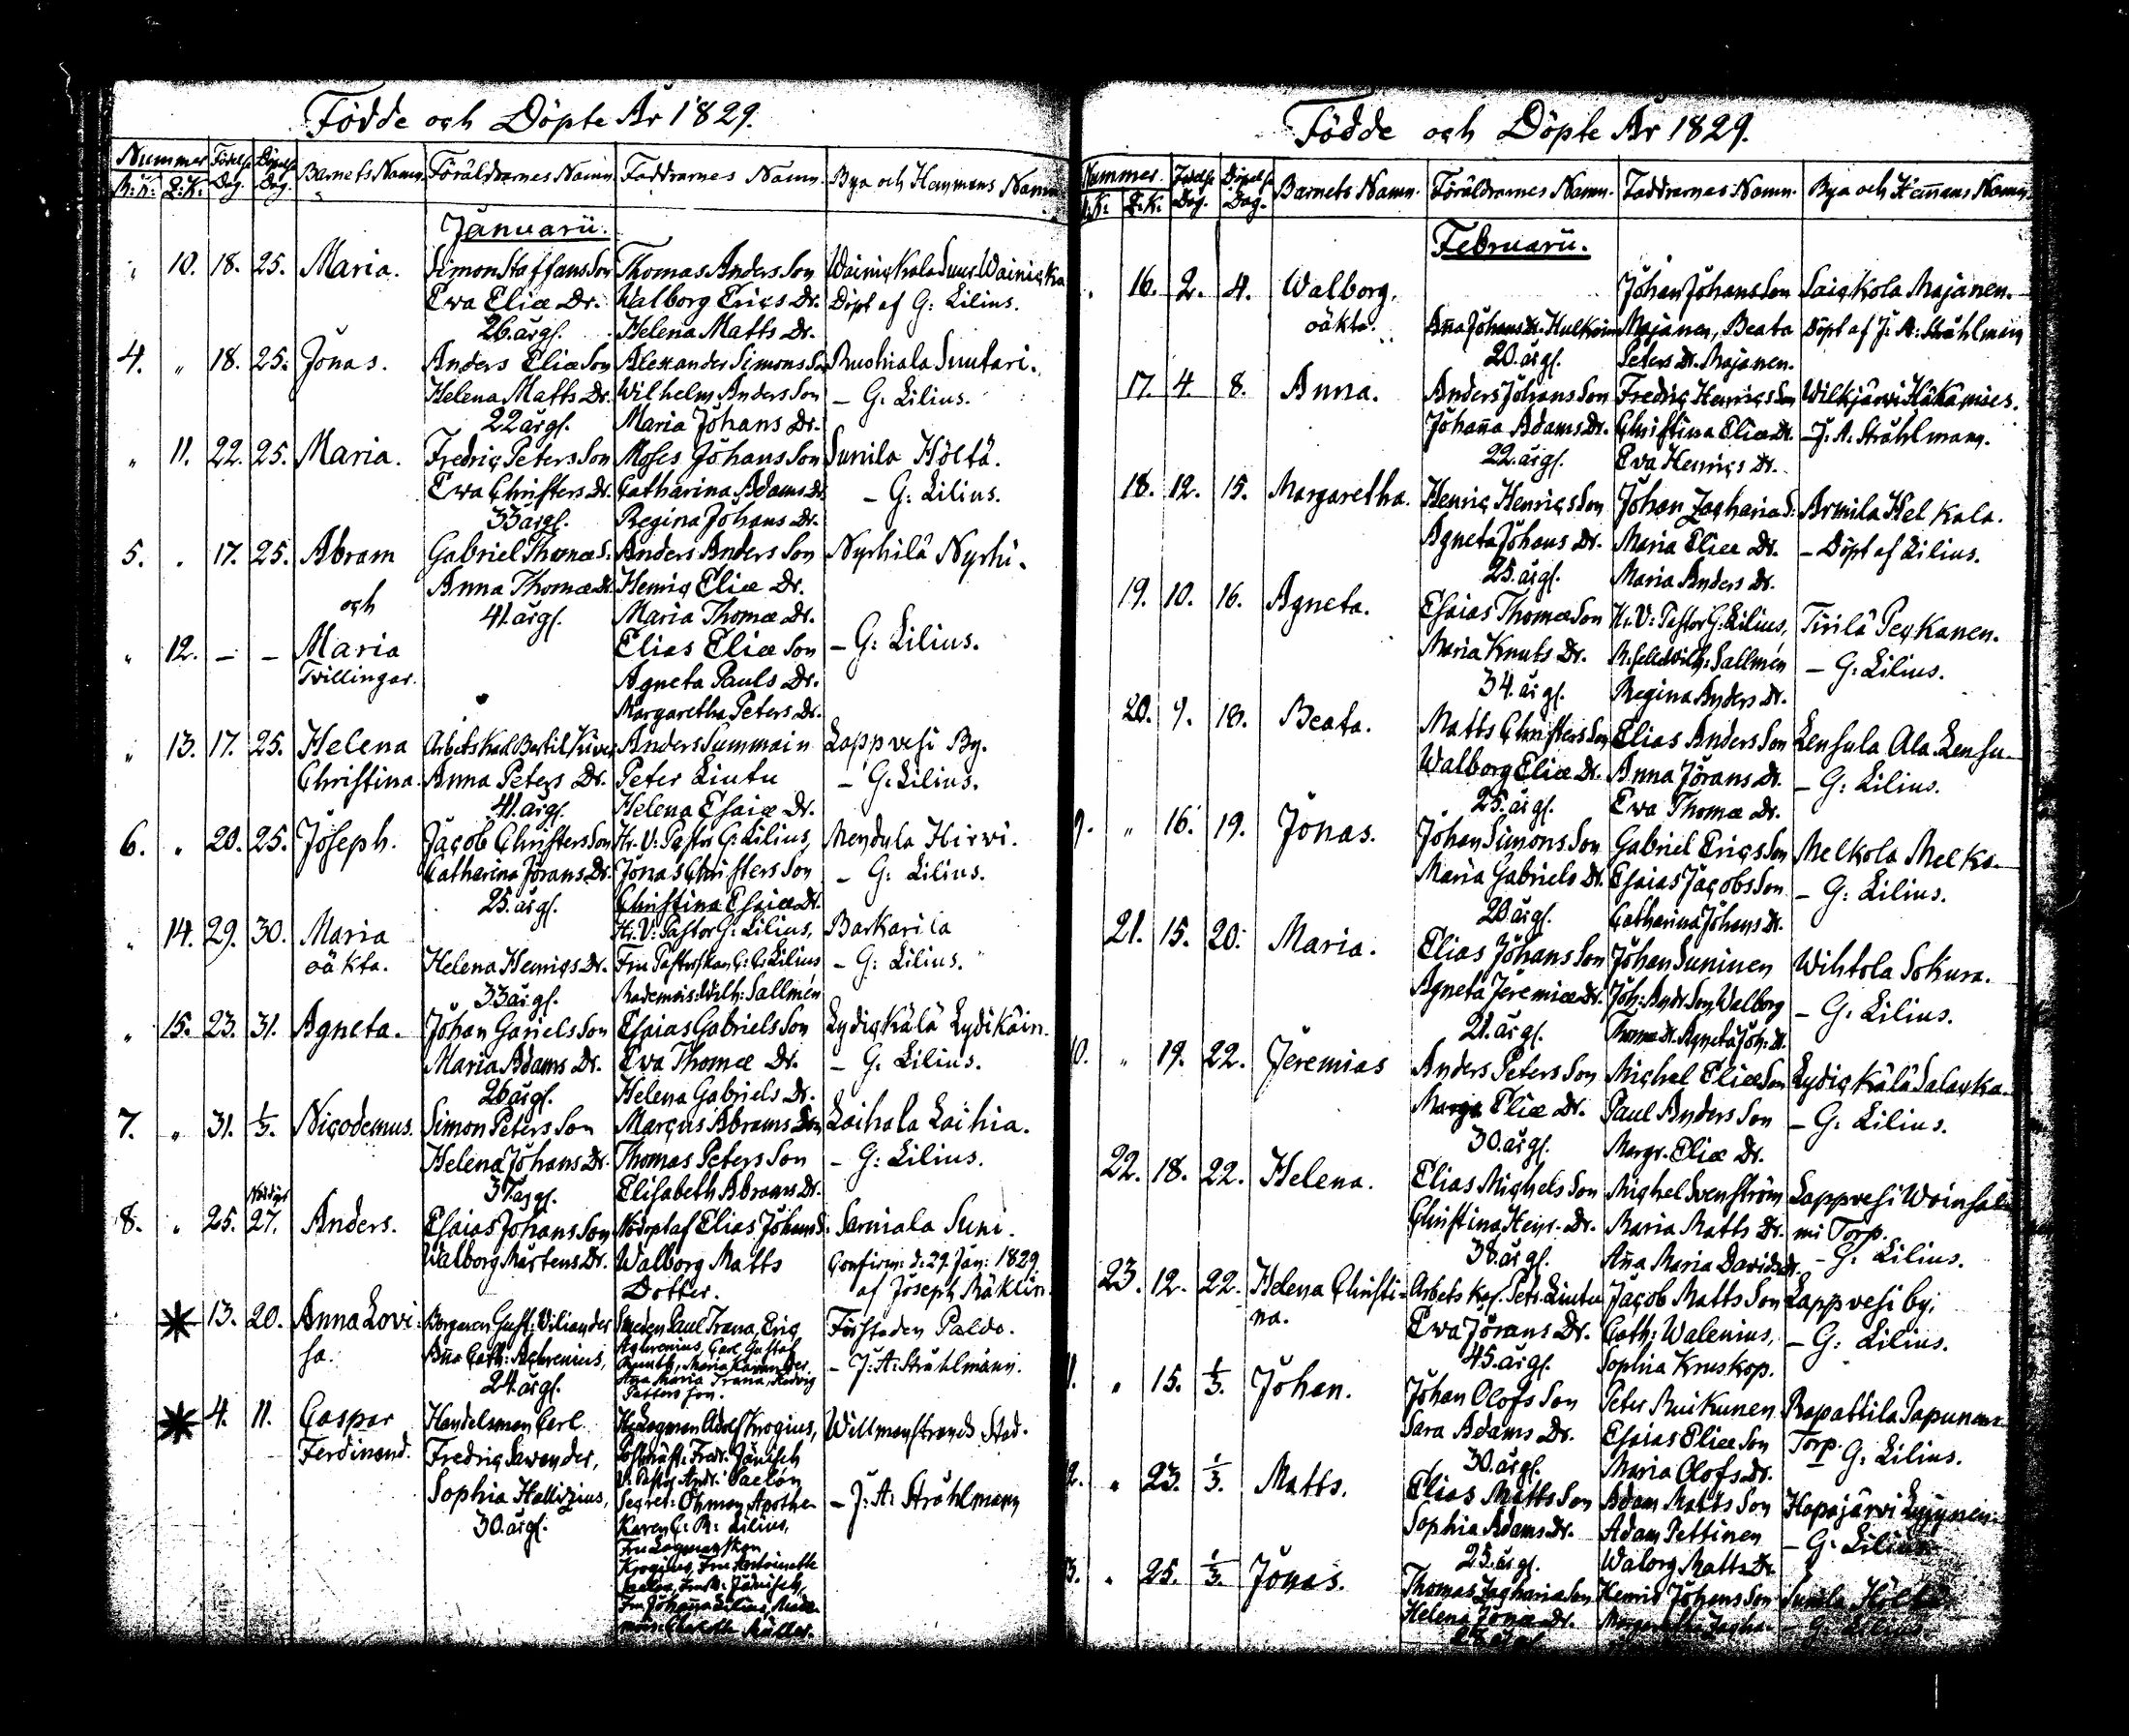 Födde och Döpte År 1829.
Nummer Födelse Dag. Döpelse Dag. Barnets Namn. Föräldrarnes Namn Faddrarnes Namn. Bya och Hemmans Namn
M:K: Q:K:
Januarii.
10. 18. 25. Maria. Simon Staffans Son Thomas Anders Son
Eva Eliæ Dr. Walborg Erics Dr. Döpt af G: Lilius.
26. årg. Helena Matts Dr.
4. " 18. 25. Jonas. Anders Eliæ Son Alexander Simons Son Ruohiala Suutari.
Helena Matts Dr. Wilhelm Anders Son – G: Lilius.
22 årg. Maria Johans Dr.
" 11. 22. 25. Maria. Fredric Peters Son Moses Johans Son Sunila Höltä.
Ewa Christers Dr. Catharina Adams Dr. – G: Lilius.
33 årg. Regina Johans Dr.
5. " 17. 25. Abram Gabriel Thomæ S: Anders Anders Son Nyrhilä Nyrhi.
Anna Thomæ Dr. Henric Eliæ Dr.
och 41. årg. Maria Thomæ Dr.
" 12. – – Maria Elias Eliæ Son – G: Lilius.
Tvillingar. Agneta Pauls Dr.
Margaretha Peters Dr.
" 13. 17. 25. Helena Arbets Karl Bertil Anders Summain Lappvesi By.
Christina. Anna Peters Dr. Peter Liutu – G: Lilius.
41. årg. Helena Esaiæ Dr.
6. " 20. 25. Joseph. Jacob Christers Son Hr. V: Pastor G: Lilius, Mendula Hirvi.
Catharina Jörans Dr. Jonas Christers Son – G: Lilius.
25. årg. Christina Esaiæ Dr.
" 14. 29. 30. Maria Hr. V: Pastor G: Lilius, Barkarila
oäkta. Helena Henrics Dr. Fru Pastorskan C: C: Lilius – G: Lilius.
33 årg. Mademois: Wilh: Sallmén
" 15. 23. 31. Agneta. Johan Gariels Son Esaias Gabriels Son Lydickälä Lydikäin.
Maria Adams Dr. Eva Thomæ Dr. – G: Lilius.
26 årg. Helena Gabriels Dr.
7. " 31. 1/3. Nicodemus. Simon Peters Son Marcus Abrams Son Laihala Laihia.
Helena Johans Dr. Thomas Peters Son – G: Lilius.
37 årg. Elisabeth Abrams Dr.
8. " 25. 27. Anders. Esaias Johans Son Nödöpt af Elias Johans S: Sarviala Suni.
Walborg Mårtens Dr. Walborg Matts Confirm: d: 29. Jan: 1829.
Dotter. af Joseph Mäklin.
13. 20. Anna Lovi- Borgaren Gust: Viliander Smeden Paul Trana, Eric Förstaden Paldo.
sa. Aña Cath: Agrenius, Agrenius, Carl Gustaf – J: A: Stråhlmann.
24. årg. Anna Maria Trana, Hedvig
Pettersson.
4. 11. Caspar Handelsman Carl Hr. Lagman Adolf Krogius, Willmanstrands Stad.
Ferdinand. Fredric Savander, Fredr: Jänisch
Sophia Hallizius, V: Pastor Andr: Saelan
30. årg. Secret: Öhman, Apothe- – J: A: Stråhlmann
karen C: R: Lilius,
Fru Lagmanskan
Krogius, Fru Antoinette
Saelan, Jänisch,
Fru Johanna Lilius, Made-
mois: Charlotte Müller.
Födde och Döpte År 1829.
Nummer. Födelse Dag. Döpelse Dag. Barnets Namn. Föräldrarnes Namn. Faddrarnes Namn. Bya och Hemans Namn.
M:K: Q:K:
Februarii.
16. 2. 4. Walborg. Johan Johans Son Saickola Majanen.
oäkta. Aña Johans Dr. Hulkoin Majanen, Beata Döpt af J: A: Stråhlman
20. årg. Peters Dr. Majanen.
17. 4. 8. Anna. Anders Johans Son Fredric Henrics Son Wilkjärvi Häkämies.
Johaña Adams Dr. Christina Eliæ Dr. – J: A: Stråhlmann.
22. årg. Eva Henrics Dr.
18. 12. 15. Margaretha. Henric Henrics Son Johan Zacharia S: Armila Helkala.
Agneta Johans Dr. Maria Eliæ Dr. – Döpt af Lilius.
25. årg. Maria Anders Dr.
19. 10. 16. Agneta. Esaias Thomæ Son Hr. V: Pastor G: Lilius, Tirilä Peckanen.
Maria Knuts Dr. Wilh: Sallmén – G: Lilius.
34. årg. Regina Anders Dr.
20. 9. 18. Beata. Matts Christers Son Elias Anders Son Lensula Ala Lensu.
Walborg Eliæ Dr. Anna Jörans Dr. – G: Lilius.
25. årg. Eva Thomæ Dr.
9. " 16. 19. Jonas. Johan Simons Son Gabriel Erics Son Melkola Melko.
Maria Gabriels Dr. Esaias Jacobs Son – G: Lilius.
20 årg. Catharina Johans Dr.
21. 15. 20. Maria. Elias Johans Son Johan Suninen Wihtola Sokura.
Agneta Jeremiæ Dr. Joh: Andr: Son, Walborg – G: Lilius.
21. årg. Thomæ Dr. Agneta Joh: Dr.
10. " 19. 22. Jeremias Anders Peters Son Michel Eliæ Son Lydickälä Salacka.
Margr. Eliæ Dr. Paul Anders Son – G: Lilius.
30. årg. Margr. Eliæ Dr.
22. 18. 22. Helena. Elias Michels Son Michel Svenström Lappvesi Woinsal-
Christina Henr. Dr. Maria Matts Dr. mi Torp.
38. årg. Aña Maria Davids Dr. – G: Lilius.
23. 12. 22. Helena Christi- Arbets Ka. Petr. Liutu Jacob Matts Son Lappvesi by.
na. Ewa Jörans Dr. Cath: Walenius, – G: Lilius.
45. årg. Sophia Kruskop.
11. " 15. 1/3. Johan. Johan Olofs Son Peter Ruikunen Rapattila Papunen
Sara Adams Dr. Esaias Eliæ Son Torp.
30. årg. Maria Olofs Dr. – G: Lilius.
12. " 23. 1/3. Matts. Elias Matts Son Adam Matts Son Hapajärvi Lyijynen.
Sophia Adams Dr. Adam Pettinen – G: Lilius.
25. årg. Walorg Matts Dr.
13. " 25. 1/3. Jonas. Thomas Zacharia Son Henric Johans Son Sunila Höltä
Helena Jonæ Dr. Margaretha Zacha- – G: Lilius.